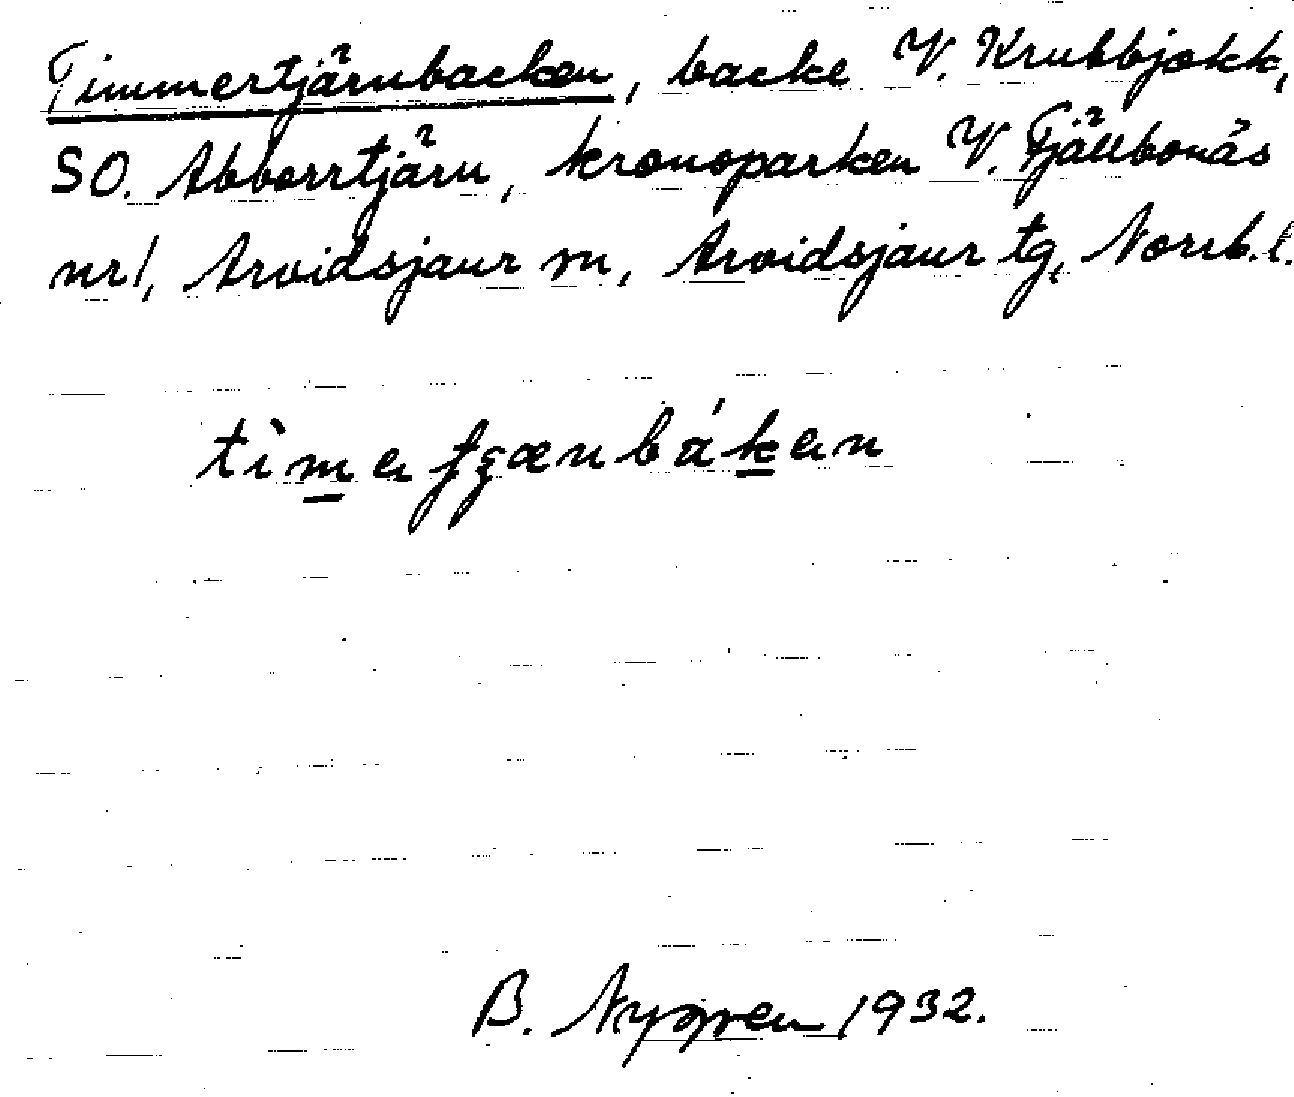 Timmertjärnbacken, backe V. Krubbjokk,
SO. Abborrtjärn, kronoparken V. Fjällbonäs
nr 1, Arvidsjaur sn, Arvidsjaur tg, Norrb. l.
B. Nygren 1932.